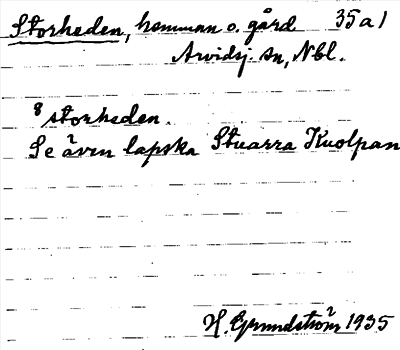 Storheden, hemman o. gård 35a1
Arvidsj. sn, Nbl.
storheden.
Se även lapska Stuarra Kuolpan
H. Grundström 1935